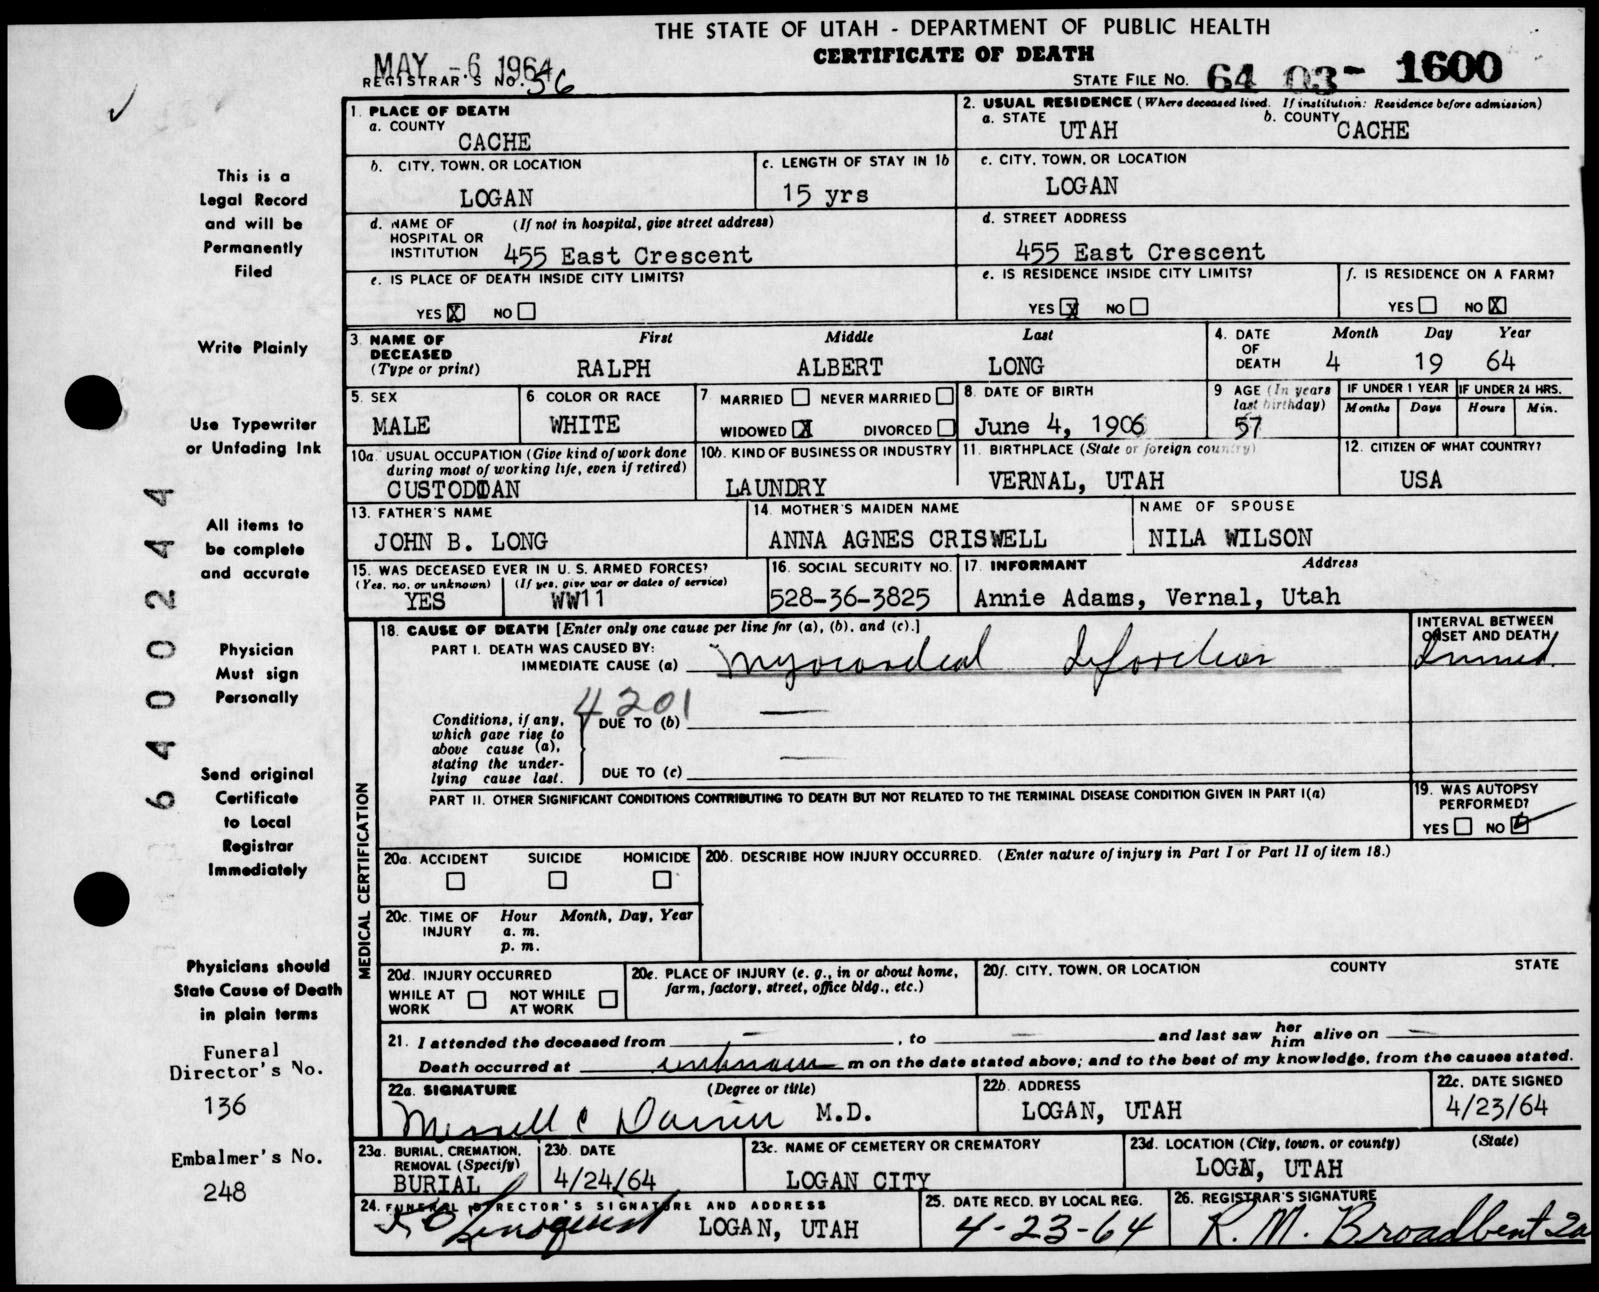 THE STATE OF UTAH - DEPARTMENT OF PUBLIC HEALTH
CERTIFICATE OF DEATH
MAY -6 1964
REGISTRAR'S NO. 56
STATE FILE NO. 64 03- 1600
1. PLACE OF DEATH
a. COUNTY
CACHE
2. USUAL RESIDENCE (Where deceased lived. If institution: Residence before admission)
a. STATE UTAH b. COUNTY CACHE
b. CITY, TOWN, OR LOCATION
LOGAN
c. LENGTH OF STAY IN 1b
15 yrs
c. CITY, TOWN, OR LOCATION
LOGAN
d. NAME OF HOSPITAL OR INSTITUTION (If not in hospital, give street address)
455 East Crescent
d. STREET ADDRESS
455 East Crescent
e. IS PLACE OF DEATH INSIDE CITY LIMITS?
YES X NO
e. IS RESIDENCE INSIDE CITY LIMITS?
YES X NO
f. IS RESIDENCE ON A FARM?
YES NO X
3. NAME OF DECEASED (Type or print)
First Middle Last
RALPH ALBERT LONG
4. DATE OF DEATH
Month Day Year
4 19 64
5. SEX
MALE
6 COLOR OR RACE
WHITE
7 MARRIED NEVER MARRIED
WIDOWED X DIVORCED
8. DATE OF BIRTH
June 4, 1906
9 AGE (In years last birthday)
57
IF UNDER 1 YEAR
Months Days
IF UNDER 24 HRS.
Hours Min.
10a USUAL OCCUPATION (Give kind of work done during most of working life, even if retired)
CUSTODIAN
10b. KIND OF BUSINESS OR INDUSTRY
LAUNDRY
11. BIRTHPLACE (State or foreign country)
VERNAL, UTAH
12. CITIZEN OF WHAT COUNTRY?
USA
13. FATHER'S NAME
JOHN B. LONG
14. MOTHER'S MAIDEN NAME
ANNA AGNES CRISWELL
NAME OF SPOUSE
NILA WILSON
15. WAS DECEASED EVER IN U.S. ARMED FORCES?
(Yes, no, or unknown) (If yes, give war or dates of service)
YES WW11
16. SOCIAL SECURITY NO.
528-36-3825
17. INFORMANT Address
Annie Adams, Vernal, Utah
MEDICAL CERTIFICATION
18. CAUSE OF DEATH [Enter only one cause per line for (a), (b), and (c).]
PART I. DEATH WAS CAUSED BY:
IMMEDIATE CAUSE (a) Myocardial Infarction
INTERVAL BETWEEN ONSET AND DEATH
Immed.
4201
Conditions, if any, which gave rise to above cause (a), stating the underlying cause last.
DUE TO (b) —
DUE TO (c) —
PART II. OTHER SIGNIFICANT CONDITIONS CONTRIBUTING TO DEATH BUT NOT RELATED TO THE TERMINAL DISEASE CONDITION GIVEN IN PART I(a)
19. WAS AUTOPSY PERFORMED?
YES NO
20a. ACCIDENT SUICIDE HOMICIDE
20b. DESCRIBE HOW INJURY OCCURRED. (Enter nature of injury in Part I or Part II of item 18.)
20c. TIME OF INJURY Hour Month, Day, Year
a. m.
p. m.
20d. INJURY OCCURRED
WHILE AT WORK NOT WHILE AT WORK
20e. PLACE OF INJURY (e. g., in or about home, farm, factory, street, office bldg., etc.)
20f. CITY, TOWN, OR LOCATION COUNTY STATE
21. I attended the deceased from — , to — and last saw her him alive on —
Death occurred at unknown m on the date stated above; and to the best of my knowledge, from the causes stated.
22a. SIGNATURE (Degree or title)
Merrill C Daines M.D.
22b. ADDRESS
LOGAN, UTAH
22c. DATE SIGNED
4/23/64
23a. BURIAL, CREMATION, REMOVAL (Specify)
BURIAL
23b. DATE
4/24/64
23c. NAME OF CEMETERY OR CREMATORY
LOGAN CITY
23d. LOCATION (City, town, or county) (State)
LOGAN, UTAH
24. FUNERAL DIRECTOR'S SIGNATURE AND ADDRESS
Lindquist LOGAN, UTAH
25. DATE RECD. BY LOCAL REG.
4-23-64
26. REGISTRAR'S SIGNATURE
R. M. Broadbent
This is a
Legal Record
and will be
Permanently
Filed
Write Plainly
Use Typewriter
or Unfading Ink
All items to
be complete
and accurate
Physician
Must sign
Personally
Send original
Certificate
to Local
Registrar
Immediately
Physicians should
State Cause of Death
in plain terms
Funeral
Director's No.
136
Embalmer's No.
248
6400244